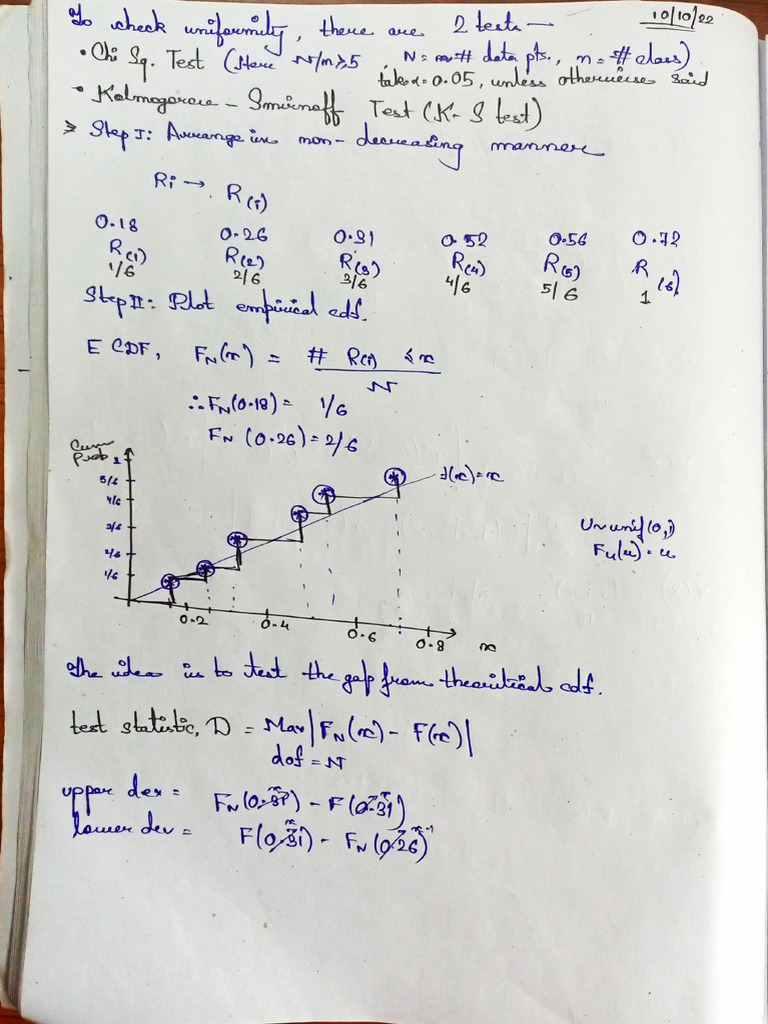 10/10/22
To check uniformity, there are 2 tests —
• Chi Sq. Test (Here N/n ≥ 5, N = # data pts., n = # class)
take α = 0.05, unless otherwise said
• Kolmogorov – Smirnoff Test (K-S test)
> Step I: Arrange in non-decreasing manner
Ri → R(i)
0.18 0.26 0.31 0.52 0.56 0.72
R(1) R(2) R(3) R(4) R(5) R(6)
1/6 2/6 3/6 4/6 5/6 1
Step II: Plot empirical cdf.
E CDF, FN(x) = # R(i) ≤ x / N
∴ FN(0.18) = 1/6
FN (0.26) = 2/6
Cum Prob
1
5/6
4/6
3/6
2/6
1/6
0.2 0.4 0.6 0.8 x
f(x) = x
U~unif(0,1)
FU(u) = u
The idea is to test the gap from theoritical cdf.
test statistic, D = Max |FN(x) - F(x)|
dof = N
upper dev = FN(0.31) - F(0.31)
lower dev = F(0.31) - FN(0.26)